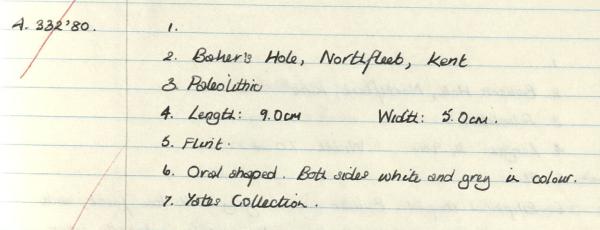 A. 332'80. 1.
2. Baker's Hole, Northfleet, Kent
3. Paleolithic
4. Length: 9.0cm Width: 5.0cm.
5. Flint.
6. Oval shaped. Both sides white and grey in colour.
7. Yates Collection.